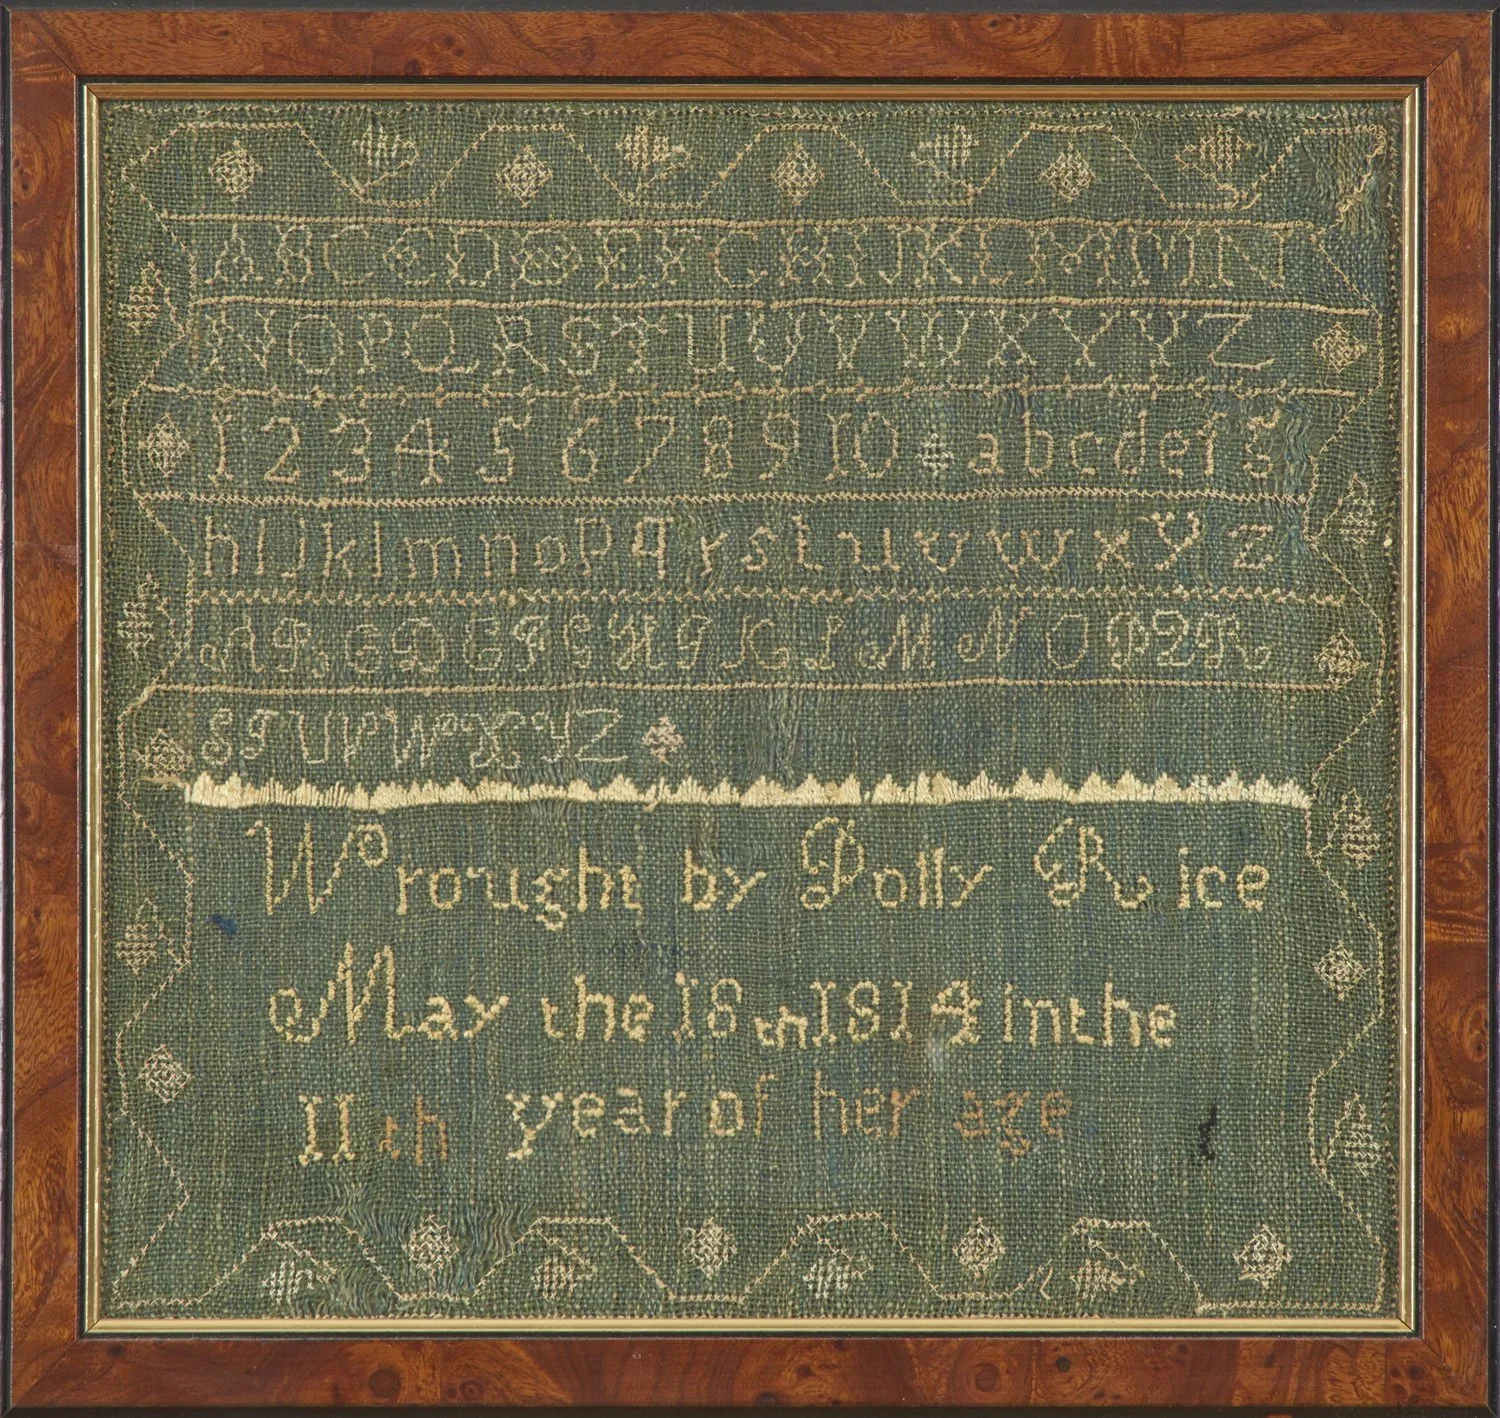 A B C D E F G H I J K L M M N
N O P Q R S T U V V W X Y Y Z
1 2 3 4 5 6 7 8 9 10 a b c d e f g
h i j k l m n o p q r s t u v w x y z
A B C D E F G H I K L M N O P Q R
S T U V W X Y Z
Wrought by Polly Rice
May the 18th 1814 in the
11th year of her age